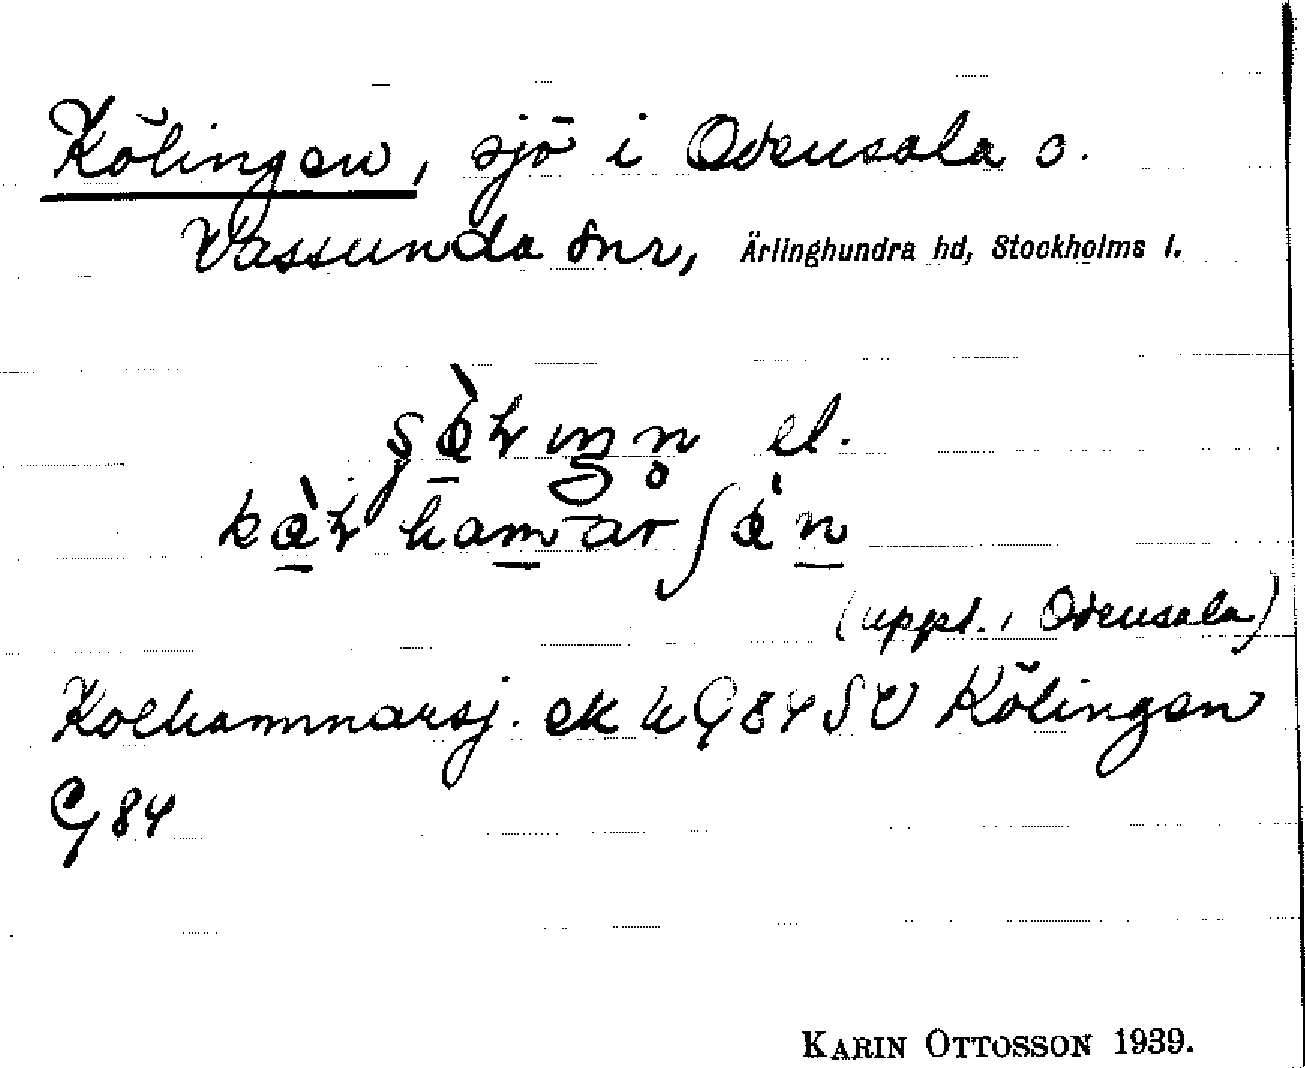 Kölingen, sjö i Odensala o.
Vassunda snr, Ärlinghundra hd, Stockholms l.
el.
(uppt. i Odensala)
Kolhammarsj. ek h G 84 SV Kölingen
G 84
KARIN OTTOSSON 1939.